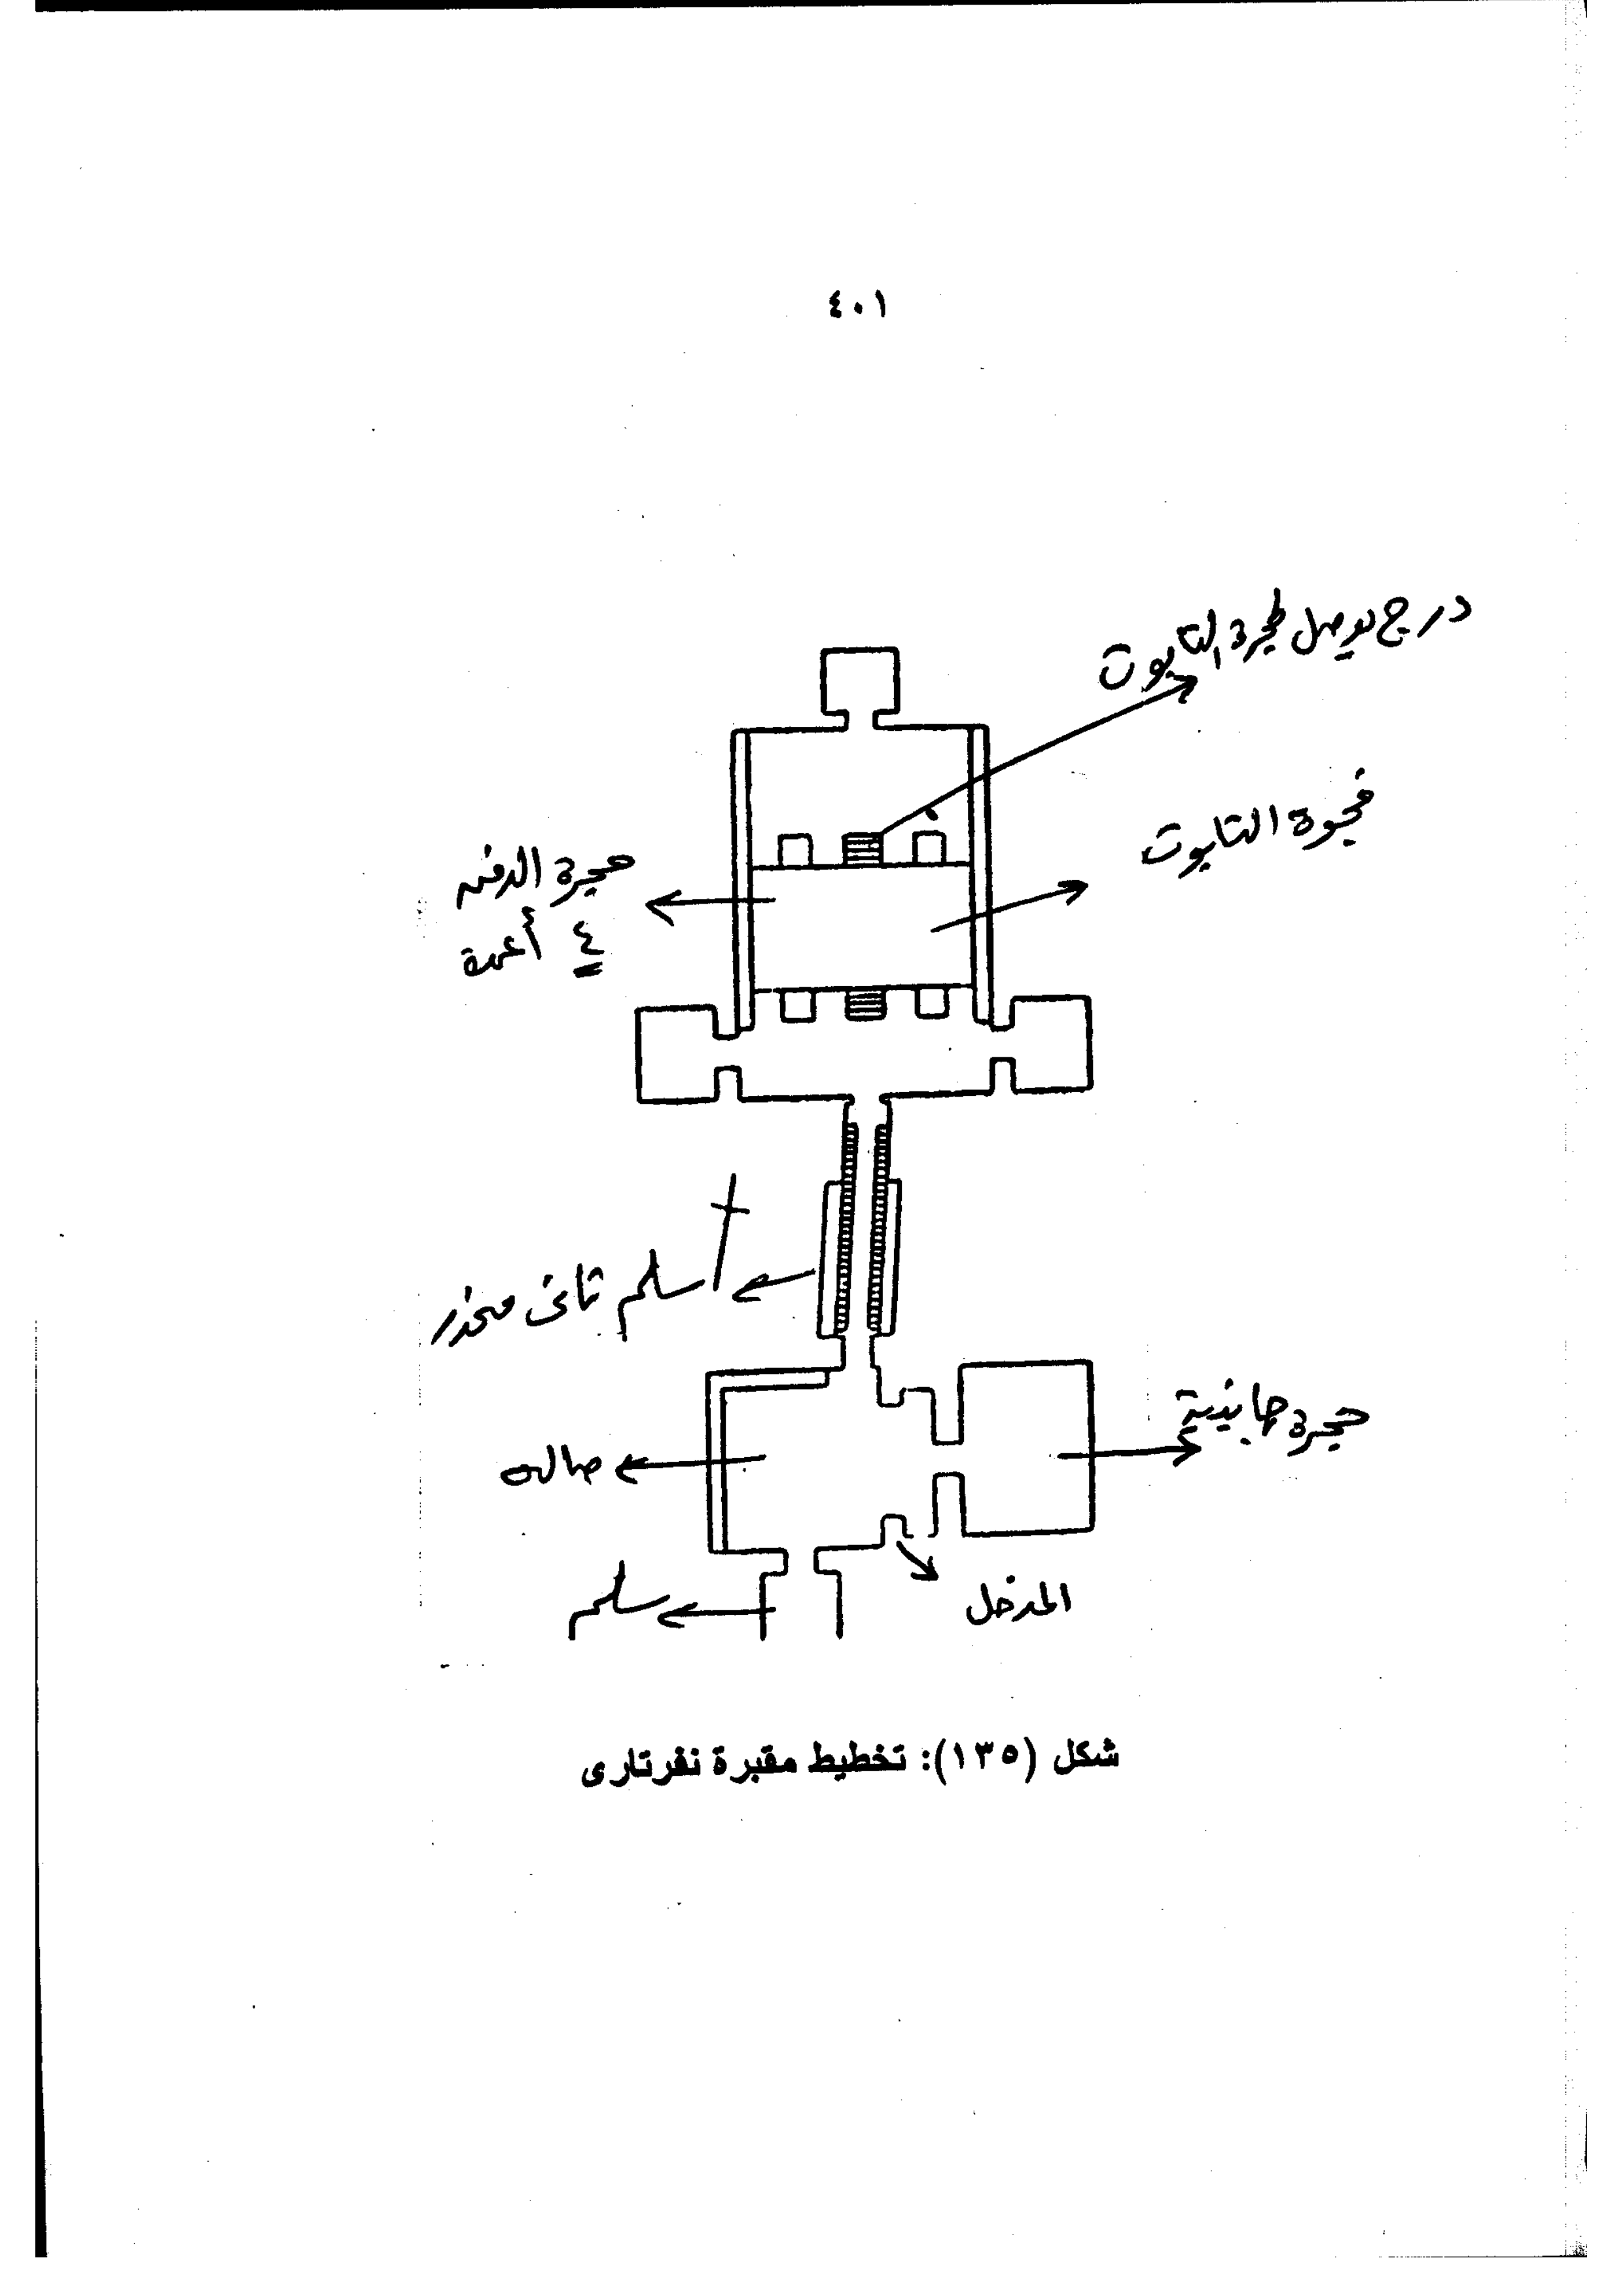 ٤٠١
درج يوصل لحجرة التابوت
فجوة التابوت
حجرة الدفن
٤ أعمدة
سلم ثانى منحدر
حجرة جانبية
صاله
المدخل
سلم
شكل (١٣٥): تخطيط مقبرة نفرتارى